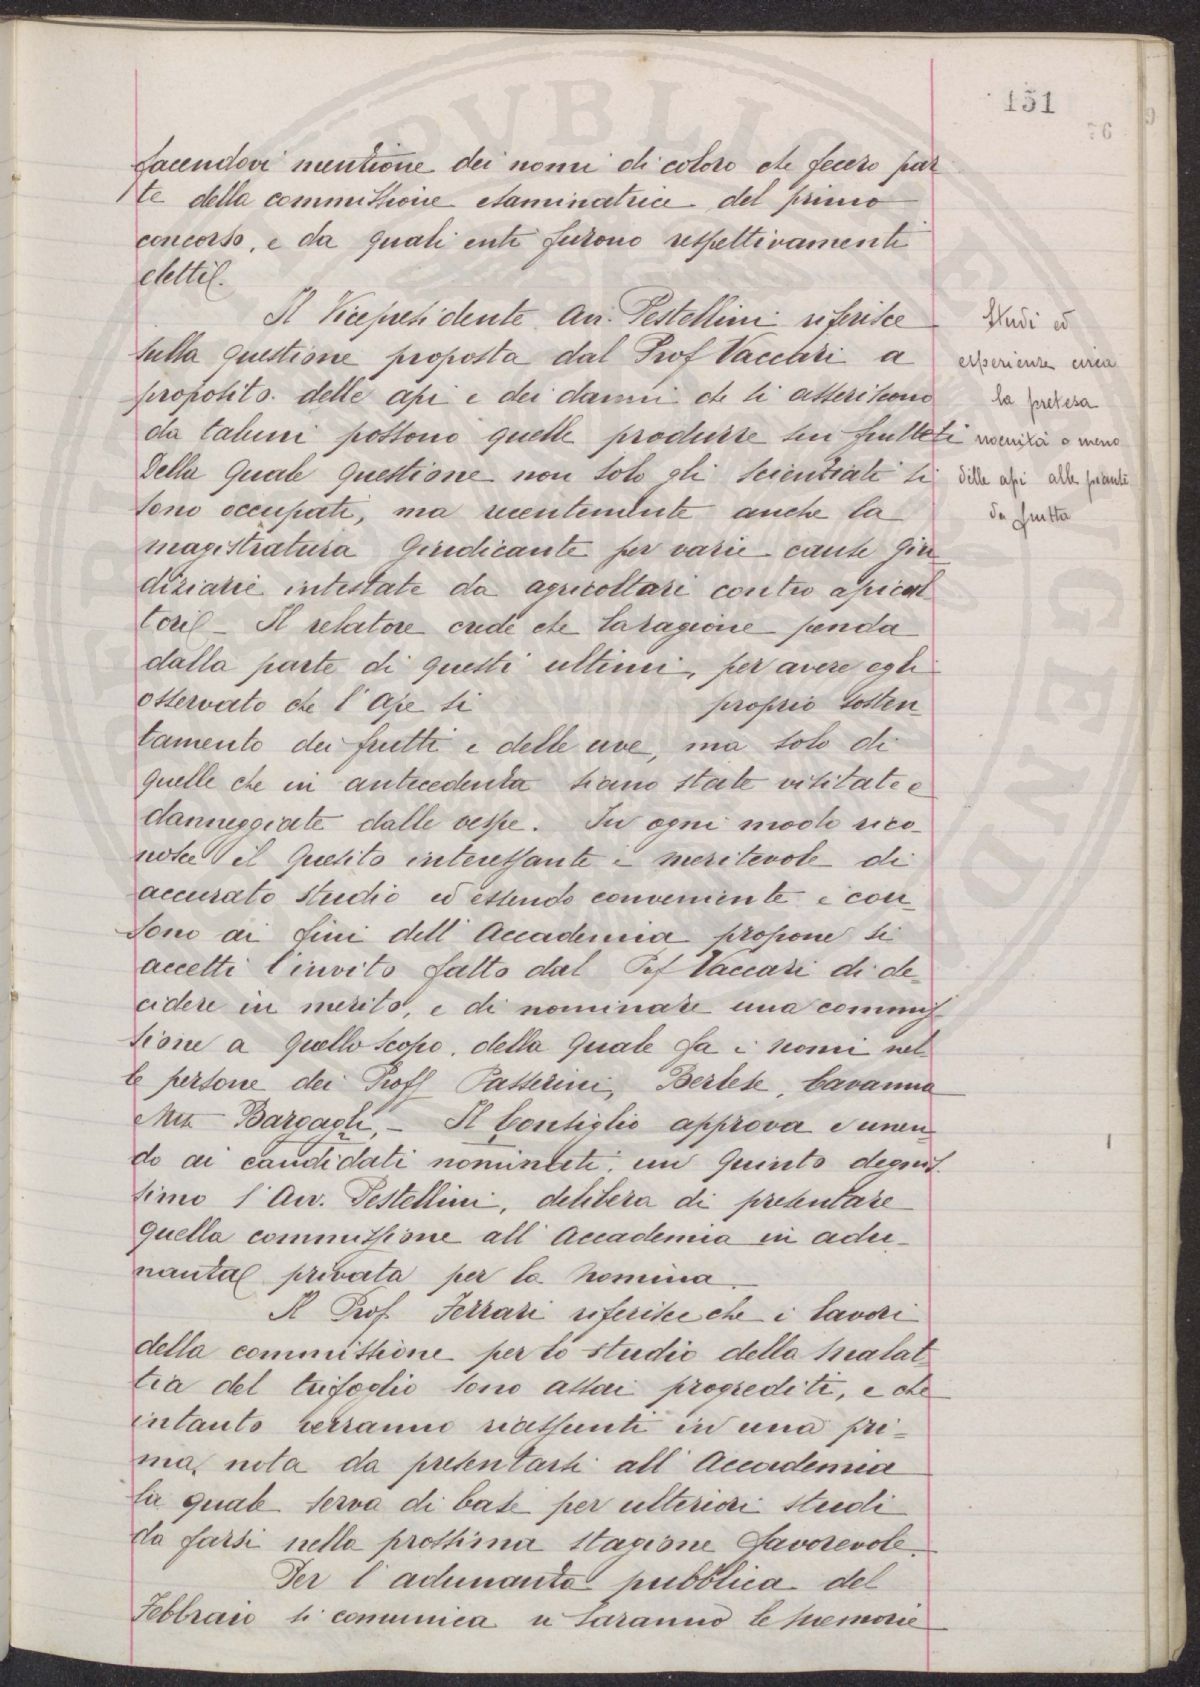 151
76
facendovi mentione dei nomi di coloro che fecero par
te della commissione esaminatrice del primo
concorso, e da quali enti furono respettivamente
eletti.
Il Vicepresidente Avv. Pestellini riferisce
sulla questione proposta dal Prof Vaccari a
proposito delle api e dei danni che si asseriscono
da taluni possono quelle produrre sui frutteti
Della quale questione non solo gli scienziati si
sono occupati, ma recentemente anche la
magistratura giudicante per varie cause giu
diziarie intestate da agricoltori contro apicol
tori_ Il relatore crede che la ragione penda
dalla parte di questi ultimi, per avere egli
osservato che l'Ape si proprio sosten=
tamento dei frutti e delle uve, ma solo di
quelle che in antecedenza siano state visitate e
danneggiate dalle vespe. In ogni modo rico=
nosce il quesito interessante e meritevole di
accurato studio ed essendo conveniente e con=
sono ai fini dell'Accademia propone si
accetti l'invito fatto dal Prof Vaccari di de=
cidere in merito, e di nominare una commis
sione a quello scopo, della quale fa i nomi nel
le persone dei Proff Passerini, Berlese, Cavanna
Bargagli,_ Il Consiglio approva e unen=
do ai candidati nominati un quinto degnis
simo l'Avv. Pestellini, delibera di presentare
quella commissione all'Accademia in adu=
nanza privata per la nomina.
Il Prof. Ferrari riferisce che i lavori
della commissione per lo studio della malat=
tia del trifoglio sono assai progrediti, e che
intanto verranno riassunti in una pri=
ma nota da presentarsi all'Accademia
la quale serva di base per ulteriori studi
da farsi nella prossima stagione favorevole.
Per l'adunanza pubblica del
Febbraio si comunica vi saranno le memorie
Studi ed
esperienze circa
la pretesa
nocuità o meno
delle api alle piante
da frutta